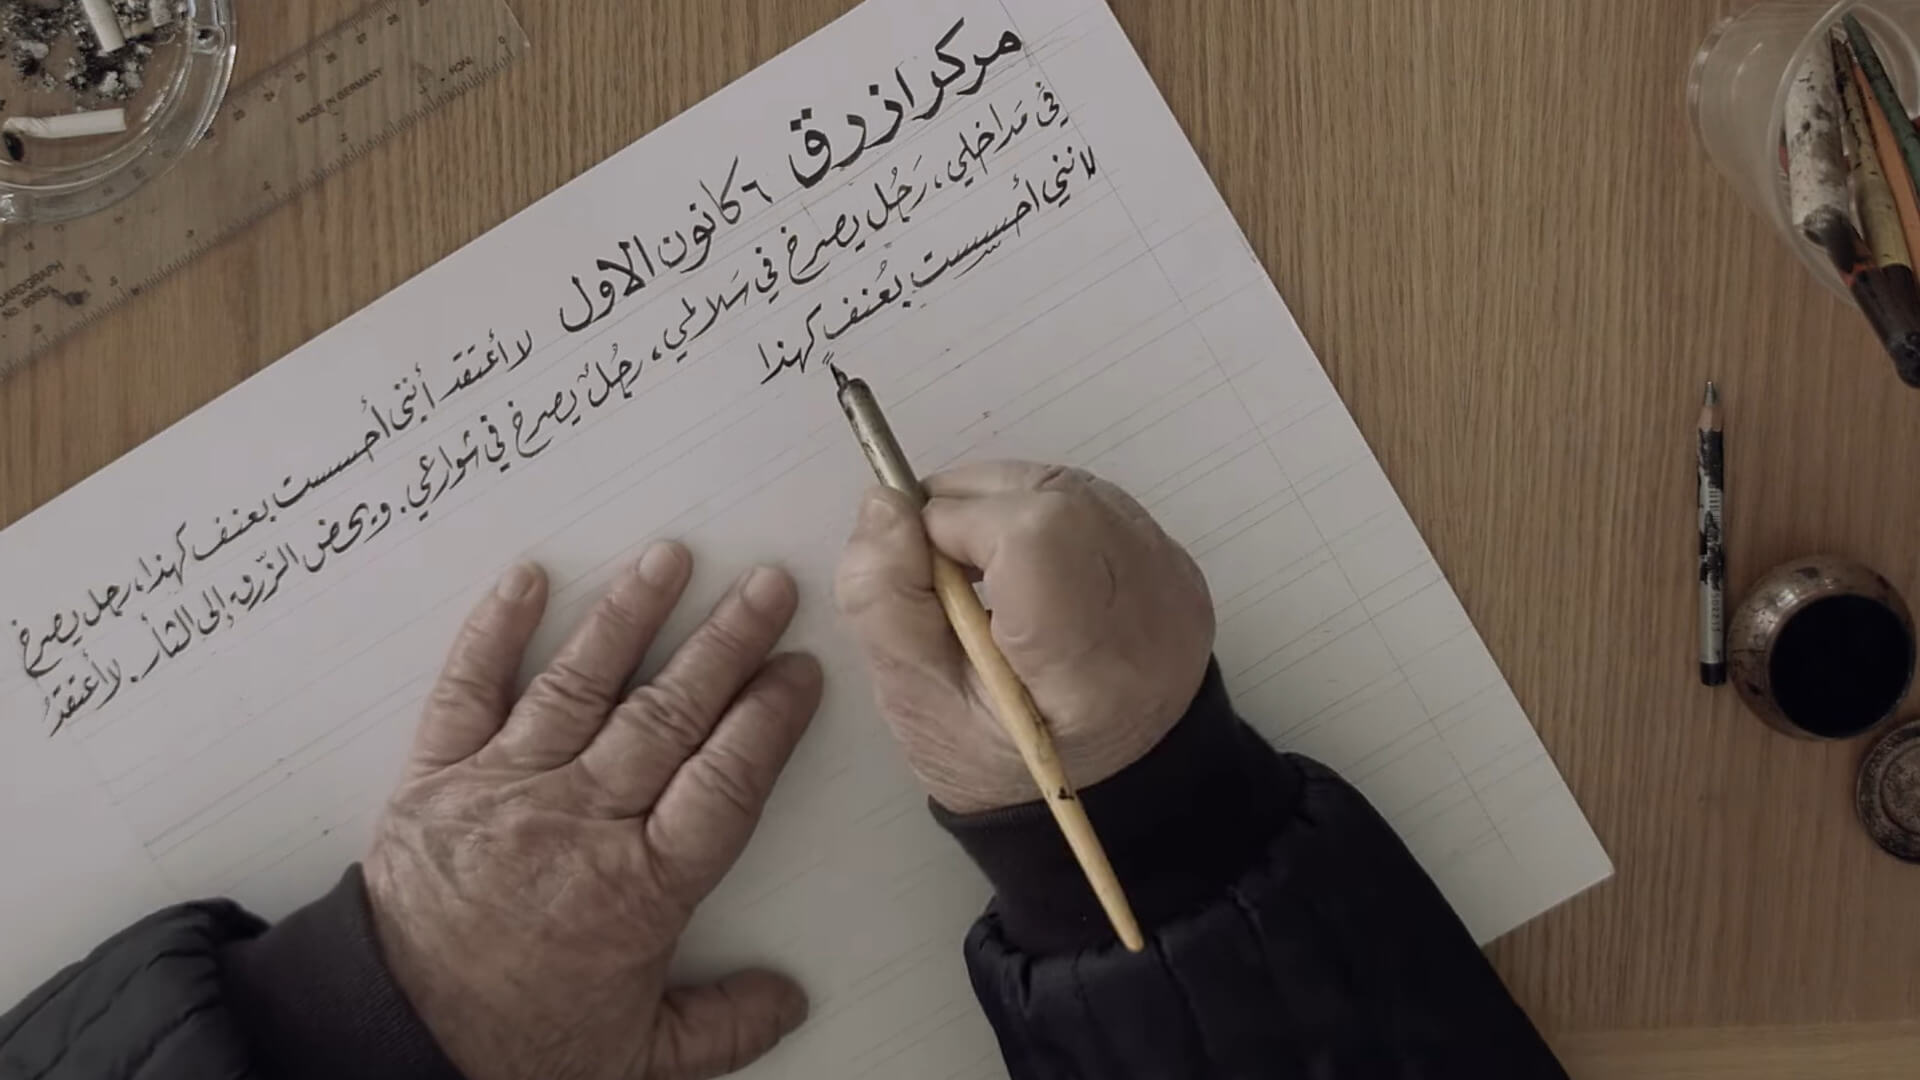 مركز ازرق ٦ كانون الاول لا أعتقد أنني أحسست بعنف كهذا، رجل يصرخ
في مَداخلي، رَجُل يصرخ في سَلالمي، رجُلٌ يصرخ في شوارعي. ويحض الزّرق إلى الثأر. لا أعتقدُ
لانني أحسست بعُنفٍ كهذا
MADE IN GERMANY